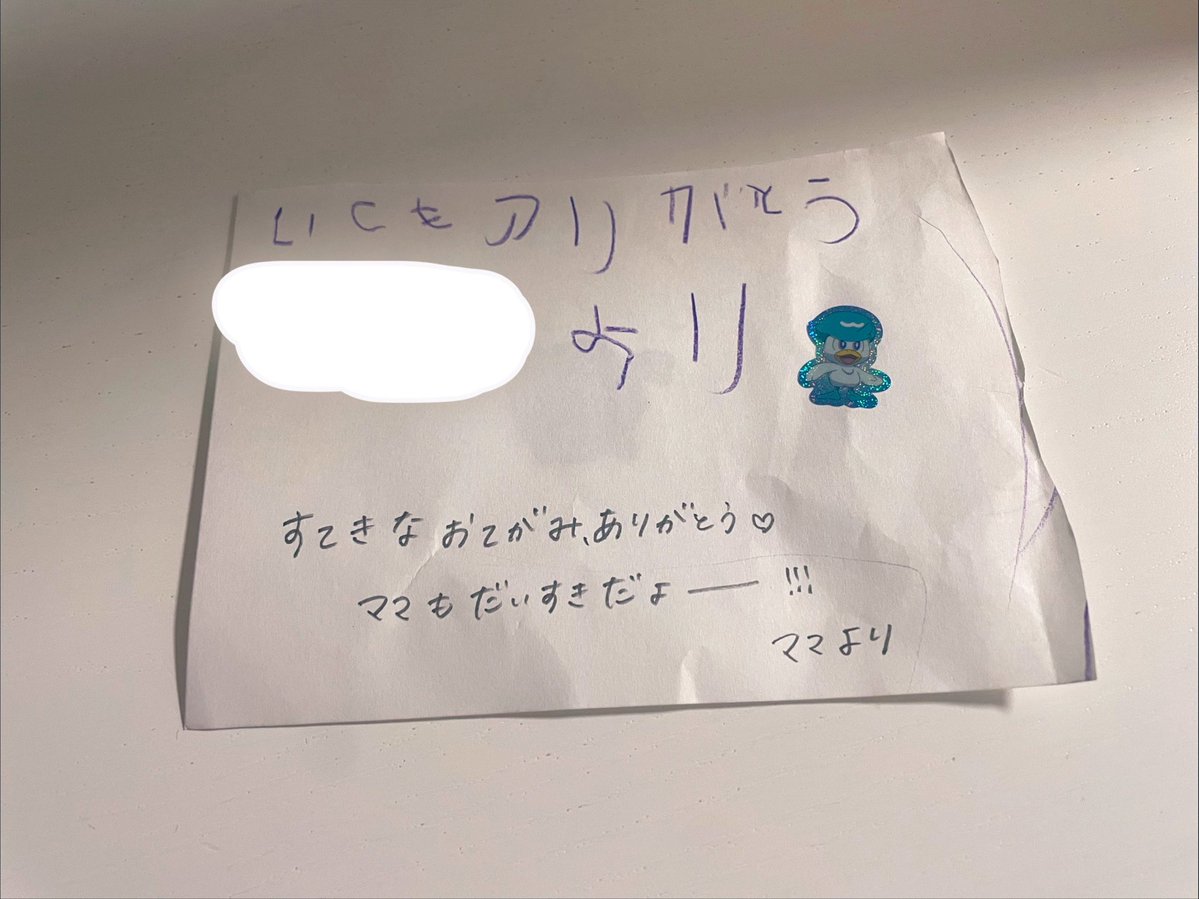 いつもアリがとう
より
すてきなおてがみ、ありがとう♡
ママもだいすきだよー!!!
ママより